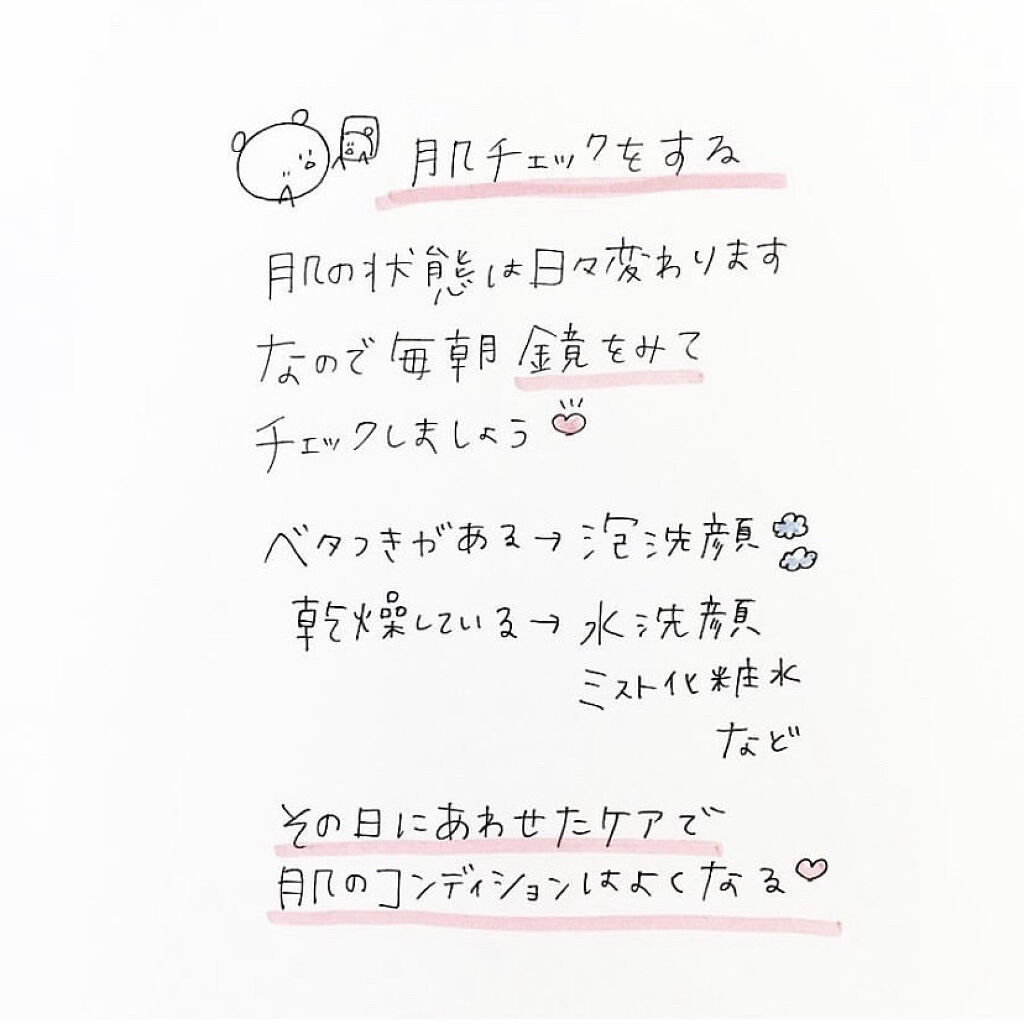 肌チェックをする
肌の状態は日々変わります
なので毎朝 鏡をみて
チェックしましょう
ベタつきがある→泡洗顔
乾燥している→水洗顔
ミスト化粧水
など
その日にあわせたケアで
肌のコンディションはよくなる